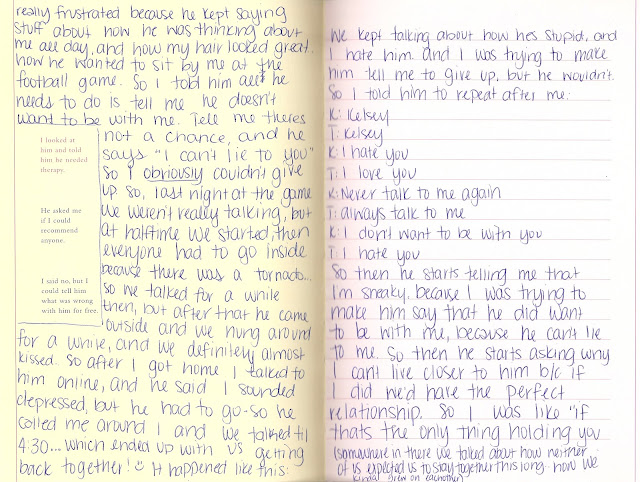 really frustrated because he kept saying
stuff about how he was thinking about
me all day, and how my hair looked great.
how he wanted to sit by me at the
football game. So I told him all he
needs to do is tell me he doesn't
want to be with me. Tell me theres
not a chance, and he
says "I can't lie to you"
So I obviously couldn't give
up. So, last night at the game
we weren't really talking, but
at halftime we started, then
everyone had to go inside
because there was a tornado...
so we talked for a while
then, but after that he came
outside and we hung around
for a while, and we definitely almost
kissed. So after I got home I talked to
him online, and he said I sounded
depressed, but he had to go-so he
called me around 1 and we talked til
4:30... which ended up with us getting
back together! It happened like this:
I looked at
him and told
him he needed
therapy.
He asked me
if I could
recommend
anyone.
I said no, but I
could tell him
what was wrong
with him for free.
We kept talking about how he's stupid, and
I hate him and I was trying to make
him tell me to give up, but he wouldn't.
So I told him to repeat after me:
K: Kelsey
T: Kelsey
K: I hate you
T: I love you
K: Never talk to me again
T: always talk to me
K: I don't want to be with you
T: I hate you
So then he starts telling me that
I'm sneaky, because I was trying to
make him say that he did want
to be with me, because he can't lie
to me. So then he starts asking why
I can't live closer to him b/c if
I did we'd have the perfect
relationship. So I was like "if
thats the only thing holding you
(somewhere in there we talked about how neither
of us expected us to stay together this long- how we
kinda grew on eachother)